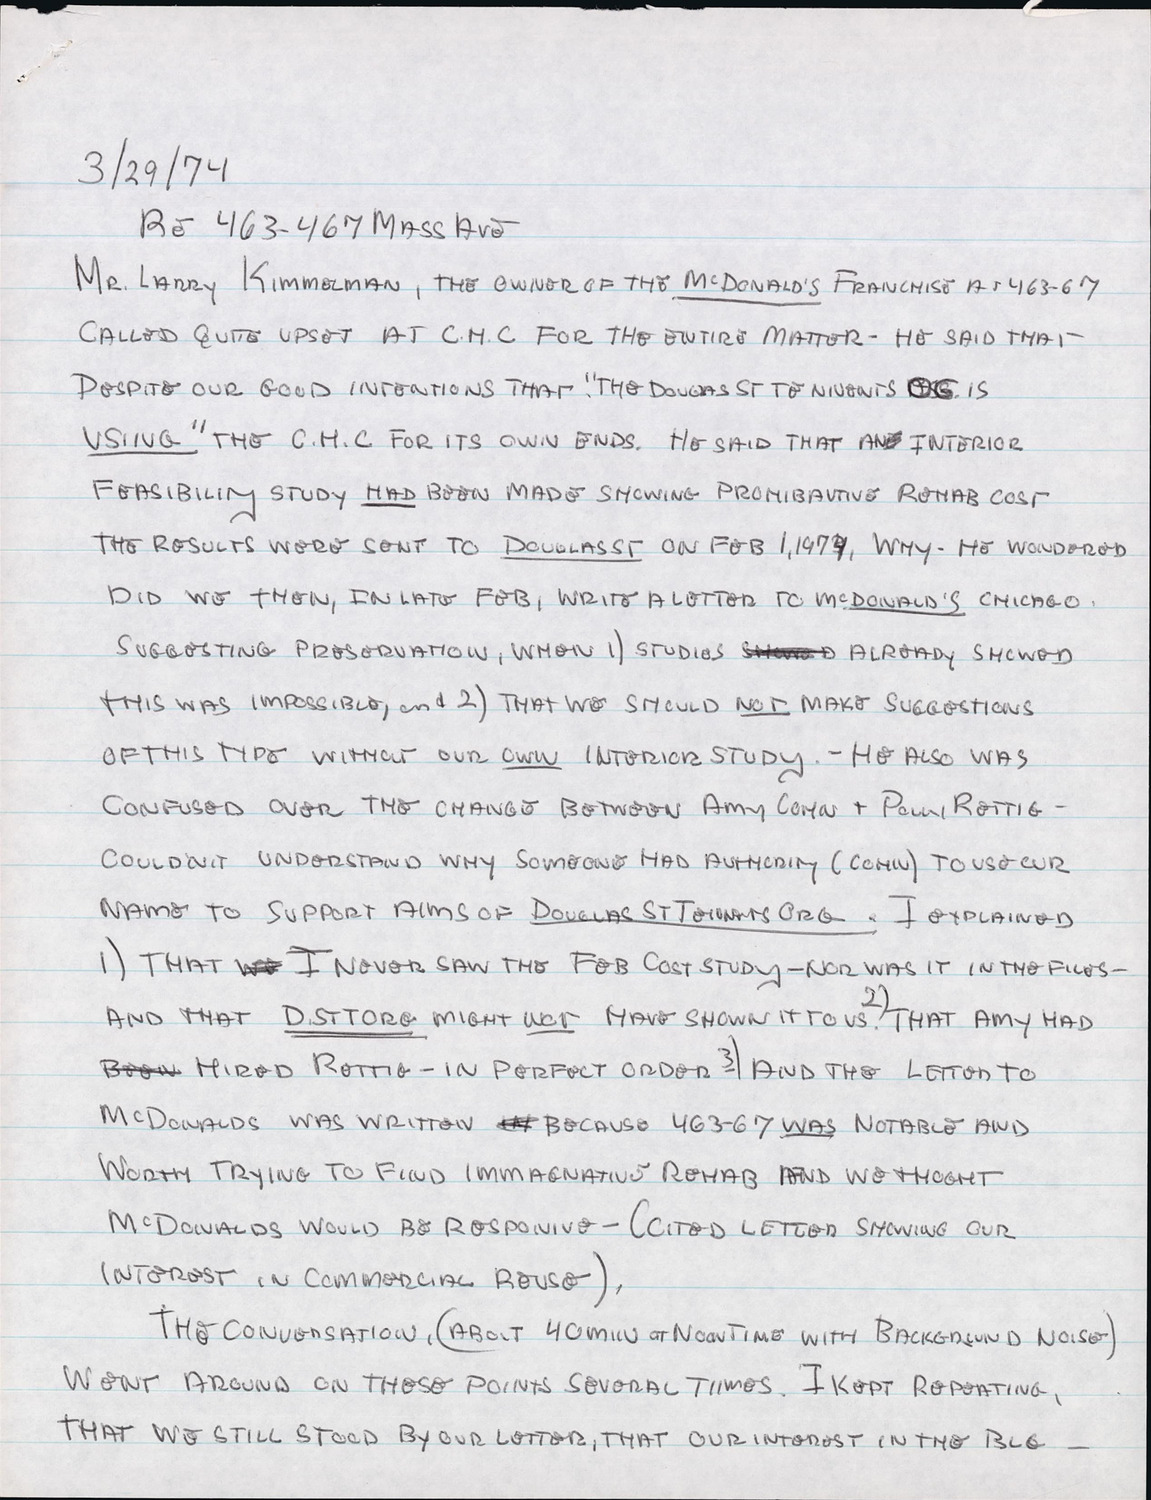 3/29/74
Re 463-467 Mass Ave
Mr. Larry Kimmelman, the owner of the McDonald's Franchise at 463-67
called quite upset at C.H.C for the entire matter - He said that
despite our good intentions that "the Douglas St Tennents is
using" the C.H.C for its own ends. He said that an interior
feasibility study had been made showing prohibautive rehab cost
the results were sent to Douglass St on Feb 1, 1974, why - he wondered
did we then, in late Feb, write a letter to McDonald's Chicago.
suggesting preservation, when 1) studies showed already showed
this was impossible, and 2) that we should not make suggestions
of this type without our own interior study. - He also was
confused over the change between Amy Cohn + Paul Rettig -
couldn't understand why someone had authority (Cohn) to use our
name to support aims of Douglas St Tennants Org. I explained
1) that we I never saw the Feb cost study - nor was it in the files -
and that D.St T Org might not have shown it to us. 2) That Amy had
been hired Rettig - in perfect order 3) and the letter to
McDonalds was written because 463-67 was notable and
worth trying to find immagnative rehab and we thoght
McDonalds would be responive - (cited letter showing our
interest in commercial reuse),
The conversation, (about 40 min at noontime with background noise)
went around on these points several times. I kept repeating,
that we still stood by our letter, that our interest in the blg -